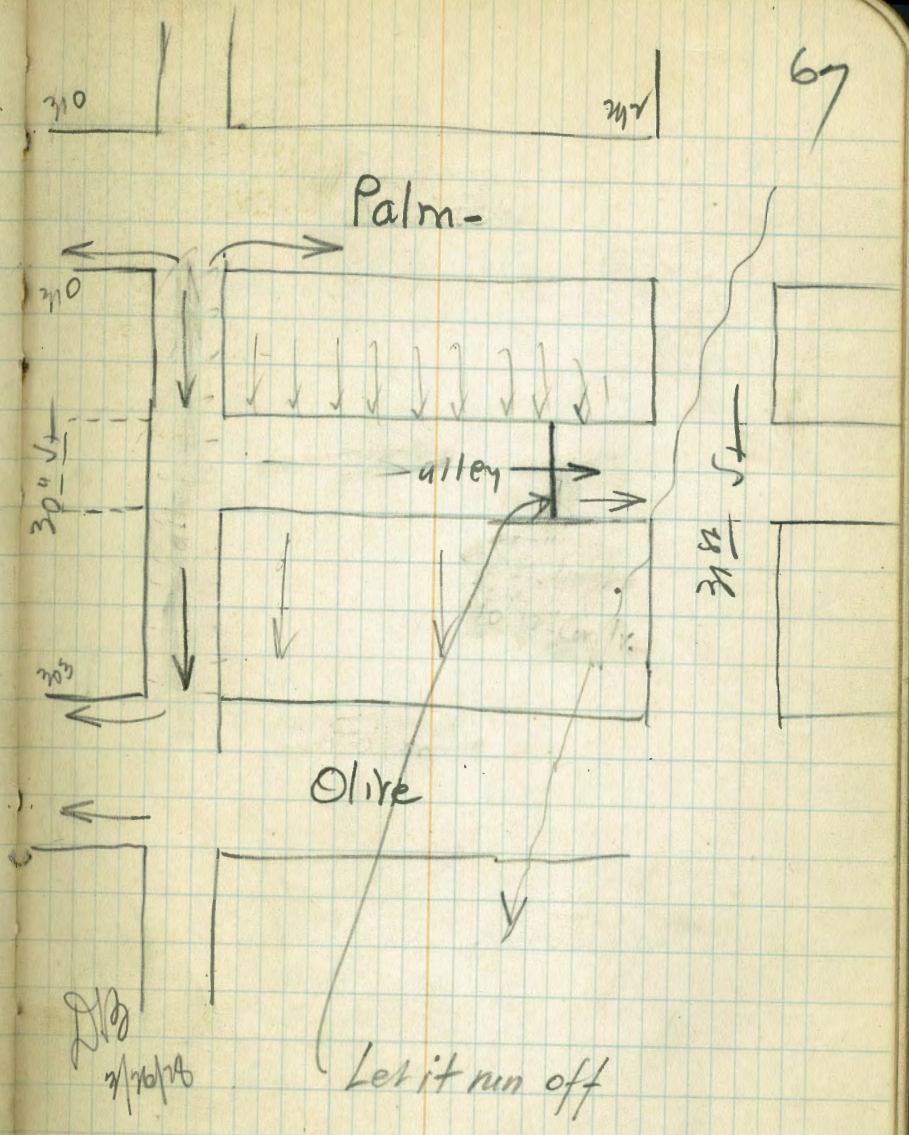 67
310
Palm-
310
30th St
alley
31st St
303
Olive
DB
Let it run off